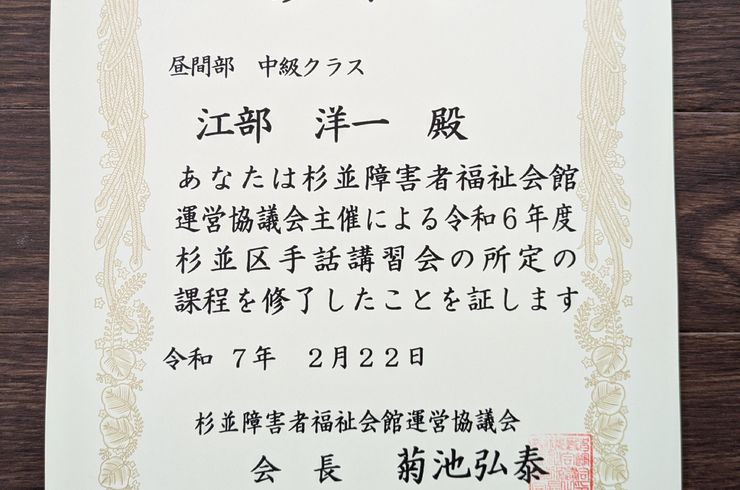 昼間部 中級クラス
江部 洋一 殿
あなたは杉並障害者福祉会館
運営協議会主催による令和6年度
杉並区手話講習会の所定の
課程を修了したことを証します
令和 7年 2月22日
杉並障害者福祉会館運営協議会
会 長 菊池弘泰